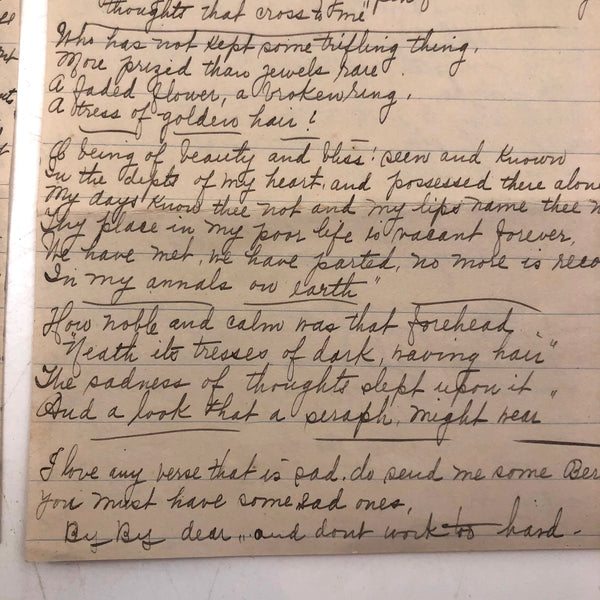 thoughts that cross to me"
Who has not kept some trifling thing,
More prizid than jewels rare.
A faded flower, a broken ring,
A tress of golden hair!
O being of beauty and bliss! seen and known
In the depts of my heart, and possessed there alone
My days know thee not and my lips name thee
Thy place in my poor life is vacant forever,
We have met, we have parted, no more is
In my annals on earth"
How noble and calm was that forehead
"Neath its tresses of dark, waving hair"
The sadness of thoughts slept upon it "
And a look that a seraph, might wear
I love any verse that is sad. do send me some
You must have some sad ones,
By By dear,, and dont work to hard.